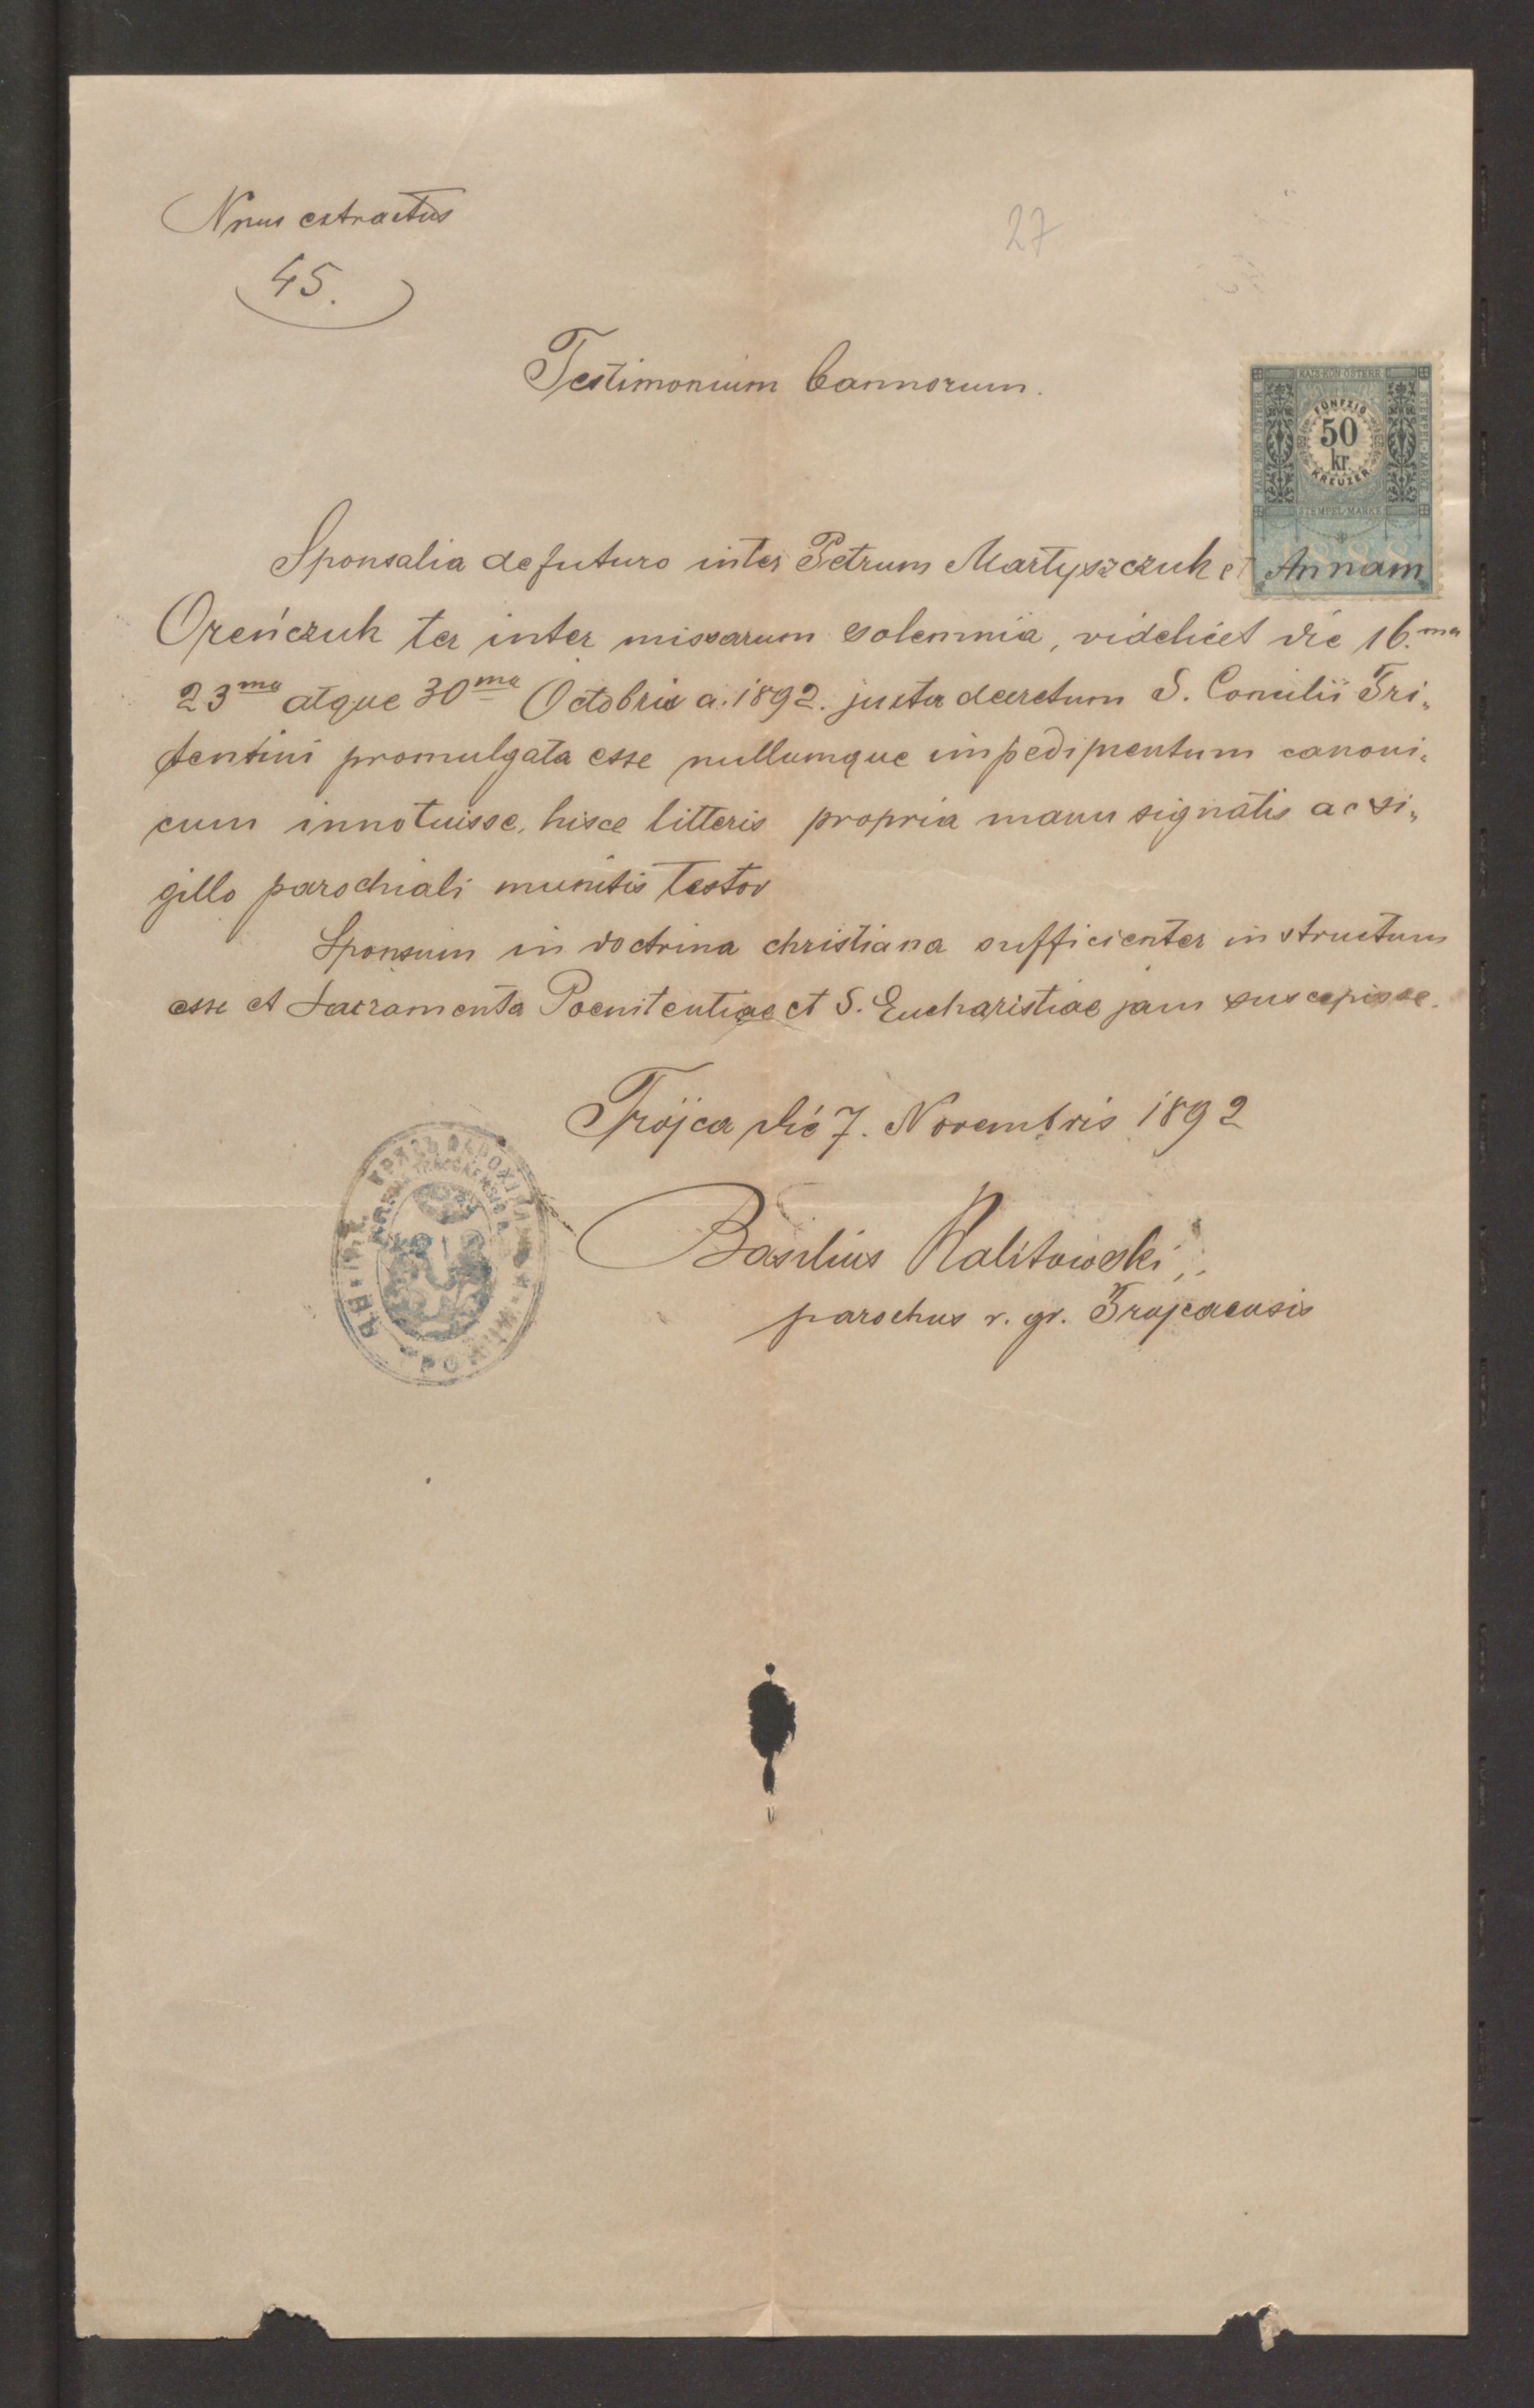 Nrus extractus
45.
27
Testimonium bannorum.
KAIS. KÖN. ÖSTERR.
FÜNFZIG
50
kr.
KREUZER
STEMPEL-MARKE
1888
Sponsalia de futuro inter Petrum Martyszczuk et Annam
Oreńczuk ter inter missarum solemnia, videlicet die 16.ma
23ma atque 30ma Octobris a. 1892. juxta decretum S. Concilii Tri„
dentini promulgata esse nullumque impedimentum canoni„
cum innotuisse, hisce litteris propria manu signatis ac si„
gillo parochiali munitis testor
Sponsum in doctrina christiana sufficienter instructum
esse et Sacramenta Poenitentiae et S. Eucharistiae jam suscepisse.
Trójca die 7. Novembris 1892
Basilius Kalitowski
parochus r. gr. Trojcaensis